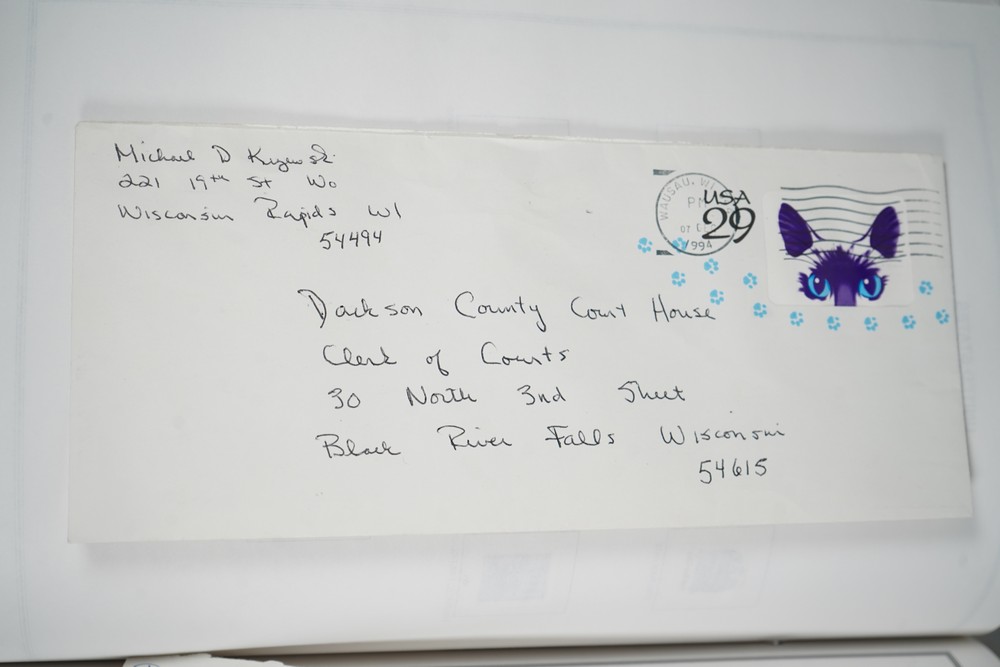 Michael D
221 19th St No
Wisconsin Rapids WI
54494
WAUSAU, WI
PM
07 DEC
1994
USA
29
Jackson County Court House
Clerk of Courts
30 North 3rd Street
Black River Falls Wisconsin
54615